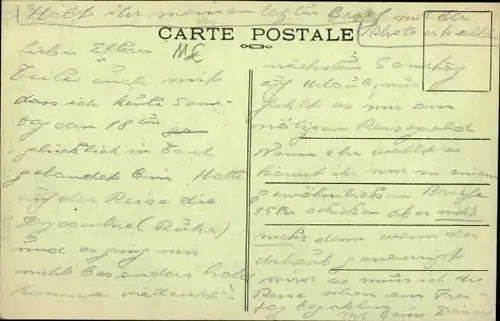 (Habt ihr meinen letzten Brief mit der
Photo erhalten
CARTE POSTALE
Liebe Eltern
Teile euch mit
dass ich heute Sams-
tag den 18ten
glücklich in
gelandet bin Hatte
auf der Reise die
Dysenterie (Ruhr)
und es ging mir
nicht besonders
komme vielleicht
nächsten Samstag
auf Urlaub, nur
fehlt es mir am
nötigen Reisegeld
Wenn ihr wollt so
könnt ihr mir in einem
gewöhnlichen Briefe
15 schicken aber nicht
mehr denn wenn der
Urlaub genehmigt
wird so muss ich die
Reise schon am Frei-
tag